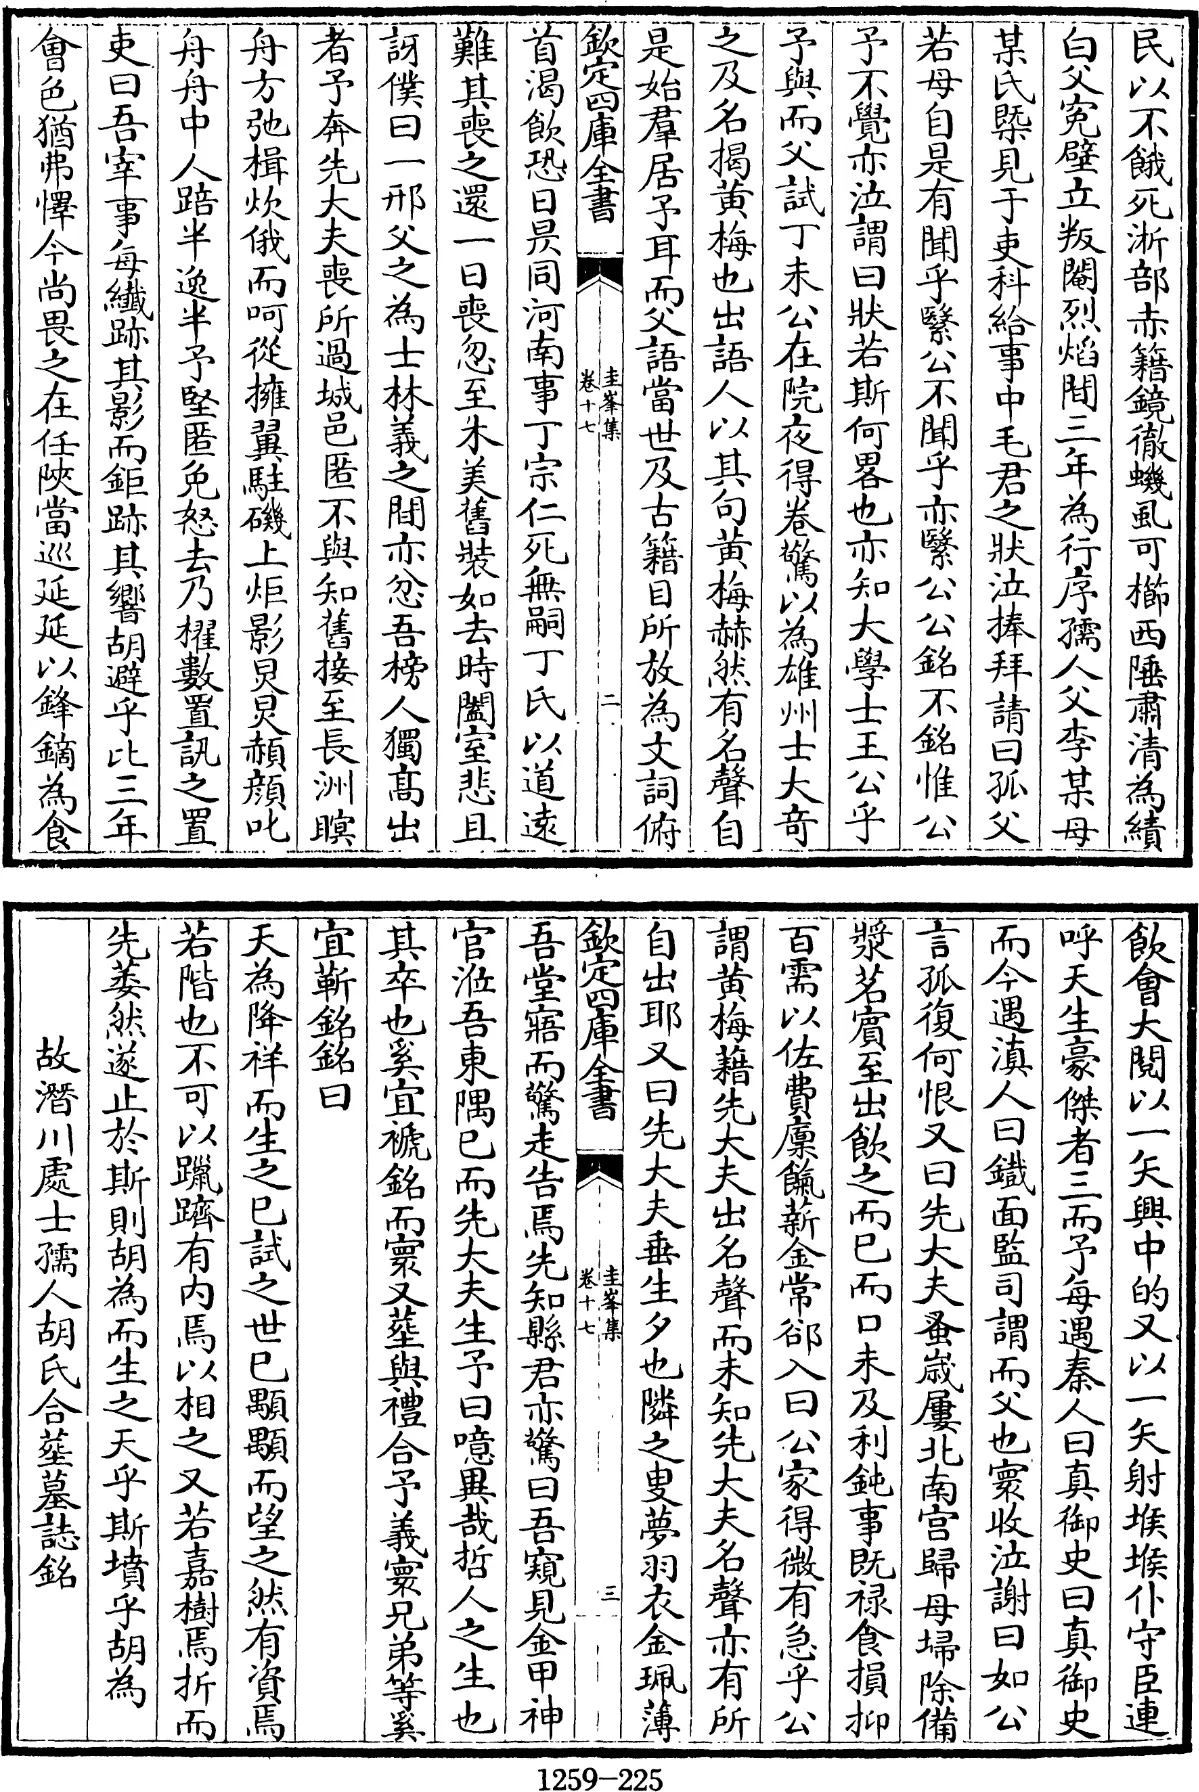 民以不餓死淅部赤籍鏡徹蟣虱可櫛西陲肅清為績
白父寃壁立叛閹烈焰間三年為行序孺人父李某母
某氏槩見于吏科給事中毛君之狀泣捧拜請曰孤父
若母自是有聞乎繄公不聞乎亦繄公公銘不銘惟公
予不覺亦泣謂曰狀若斯何畧也亦知大學士王公乎
予與而父試丁未公在院夜得卷驚以為雄州士大奇
之及名揭黄梅也出語人以其句黄梅赫然有名聲自
是始羣居予耳而父語當世及古籍目所放為文詞俯
欽定四庫全書
圭峯集
卷十七
二
首渴飲恐日昃同河南事丁宗仁死無嗣丁氏以道遠
難其喪之還一日喪忽至朱美舊裝如去時闔室悲且
訝僕曰一邢父之為士林義之間亦忿吾榜人獨髙出
者予奔先大夫喪所過城邑匿不與知舊接至長洲瞑
舟方弛楫炊俄而呵從擁翼駐磯上炬影炅炅頳顔叱
舟舟中人踣半逸半予堅匿免怒去乃櫂數置訊之置
吏曰吾宰事每纖跡其影而鉅跡其響胡避乎比三年
會色猶弗懌今尚畏之在任陜當巡延延以鋒鏑為食
飲會大閱以一矢興中的又以一矢射堠堠仆守臣連
呼天生豪傑者三而予每遇秦人曰真御史曰真御史
而今遇滇人曰鐡面監司謂而父也寰收泣謝曰如公
言孤復何恨又曰先大夫蚤嵗屢北南宫歸母埽除備
漿茗賔至出飲之而已而口未及利鈍事既禄食損抑
百需以佐費廩餼薪金常郤入曰公家得微有急乎公
謂黄梅藉先大夫出名聲而未知先大夫名聲亦有所
自出耶又曰先大夫垂生夕也隣之叟夢羽衣金珮薄
欽定四庫全書
圭峯集
卷十七
三
吾堂寤而驚走告焉先知縣君亦驚曰吾窺見金甲神
官涖吾東隅已而先大夫生予曰噫異哉哲人之生也
其卒也奚宜褫銘而寰又塟與禮合予義寰兄弟等奚
宜靳銘銘曰
天為降祥而生之已試之世已顒顒而望之然有資焉
若階也不可以躐躋有内焉以相之又若嘉樹焉折而
先萎然遂止於斯則胡為而生之天乎斯墳乎胡為
故潛川處士孺人胡氏合塟墓誌銘
1259-225